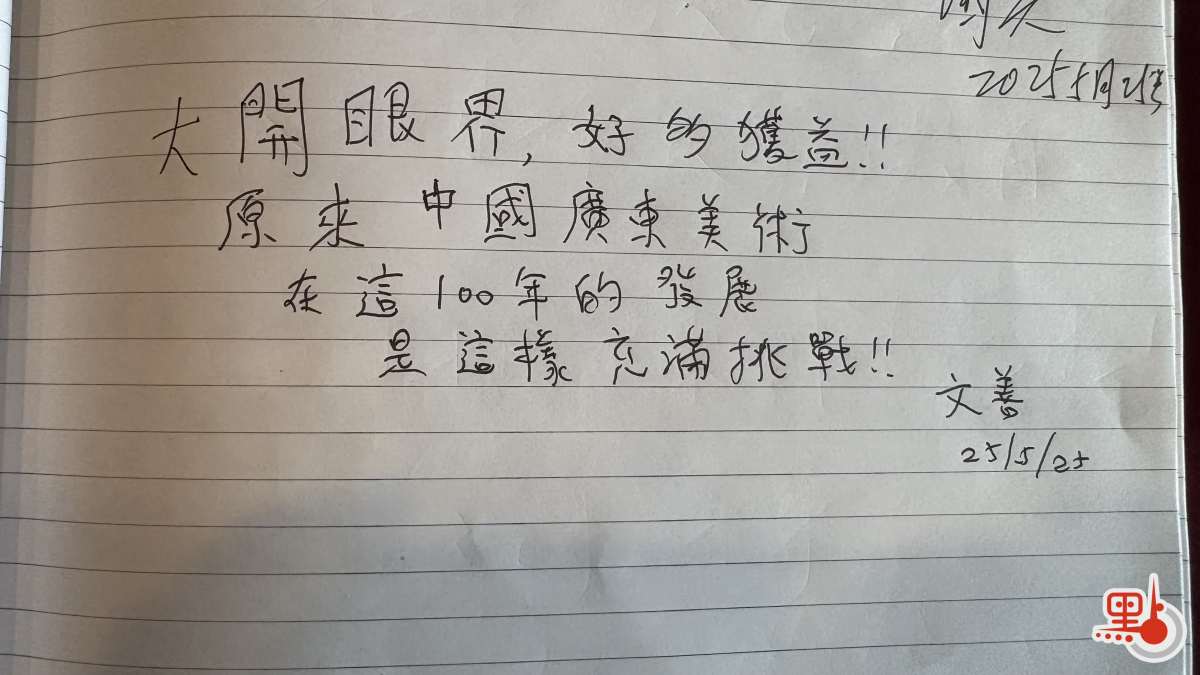 2025 5月25
大開眼界，好的獲益!!
原來中國廣東美術
在這100年的發展
是這樣充滿挑戰!!
文善
25/5/25
點